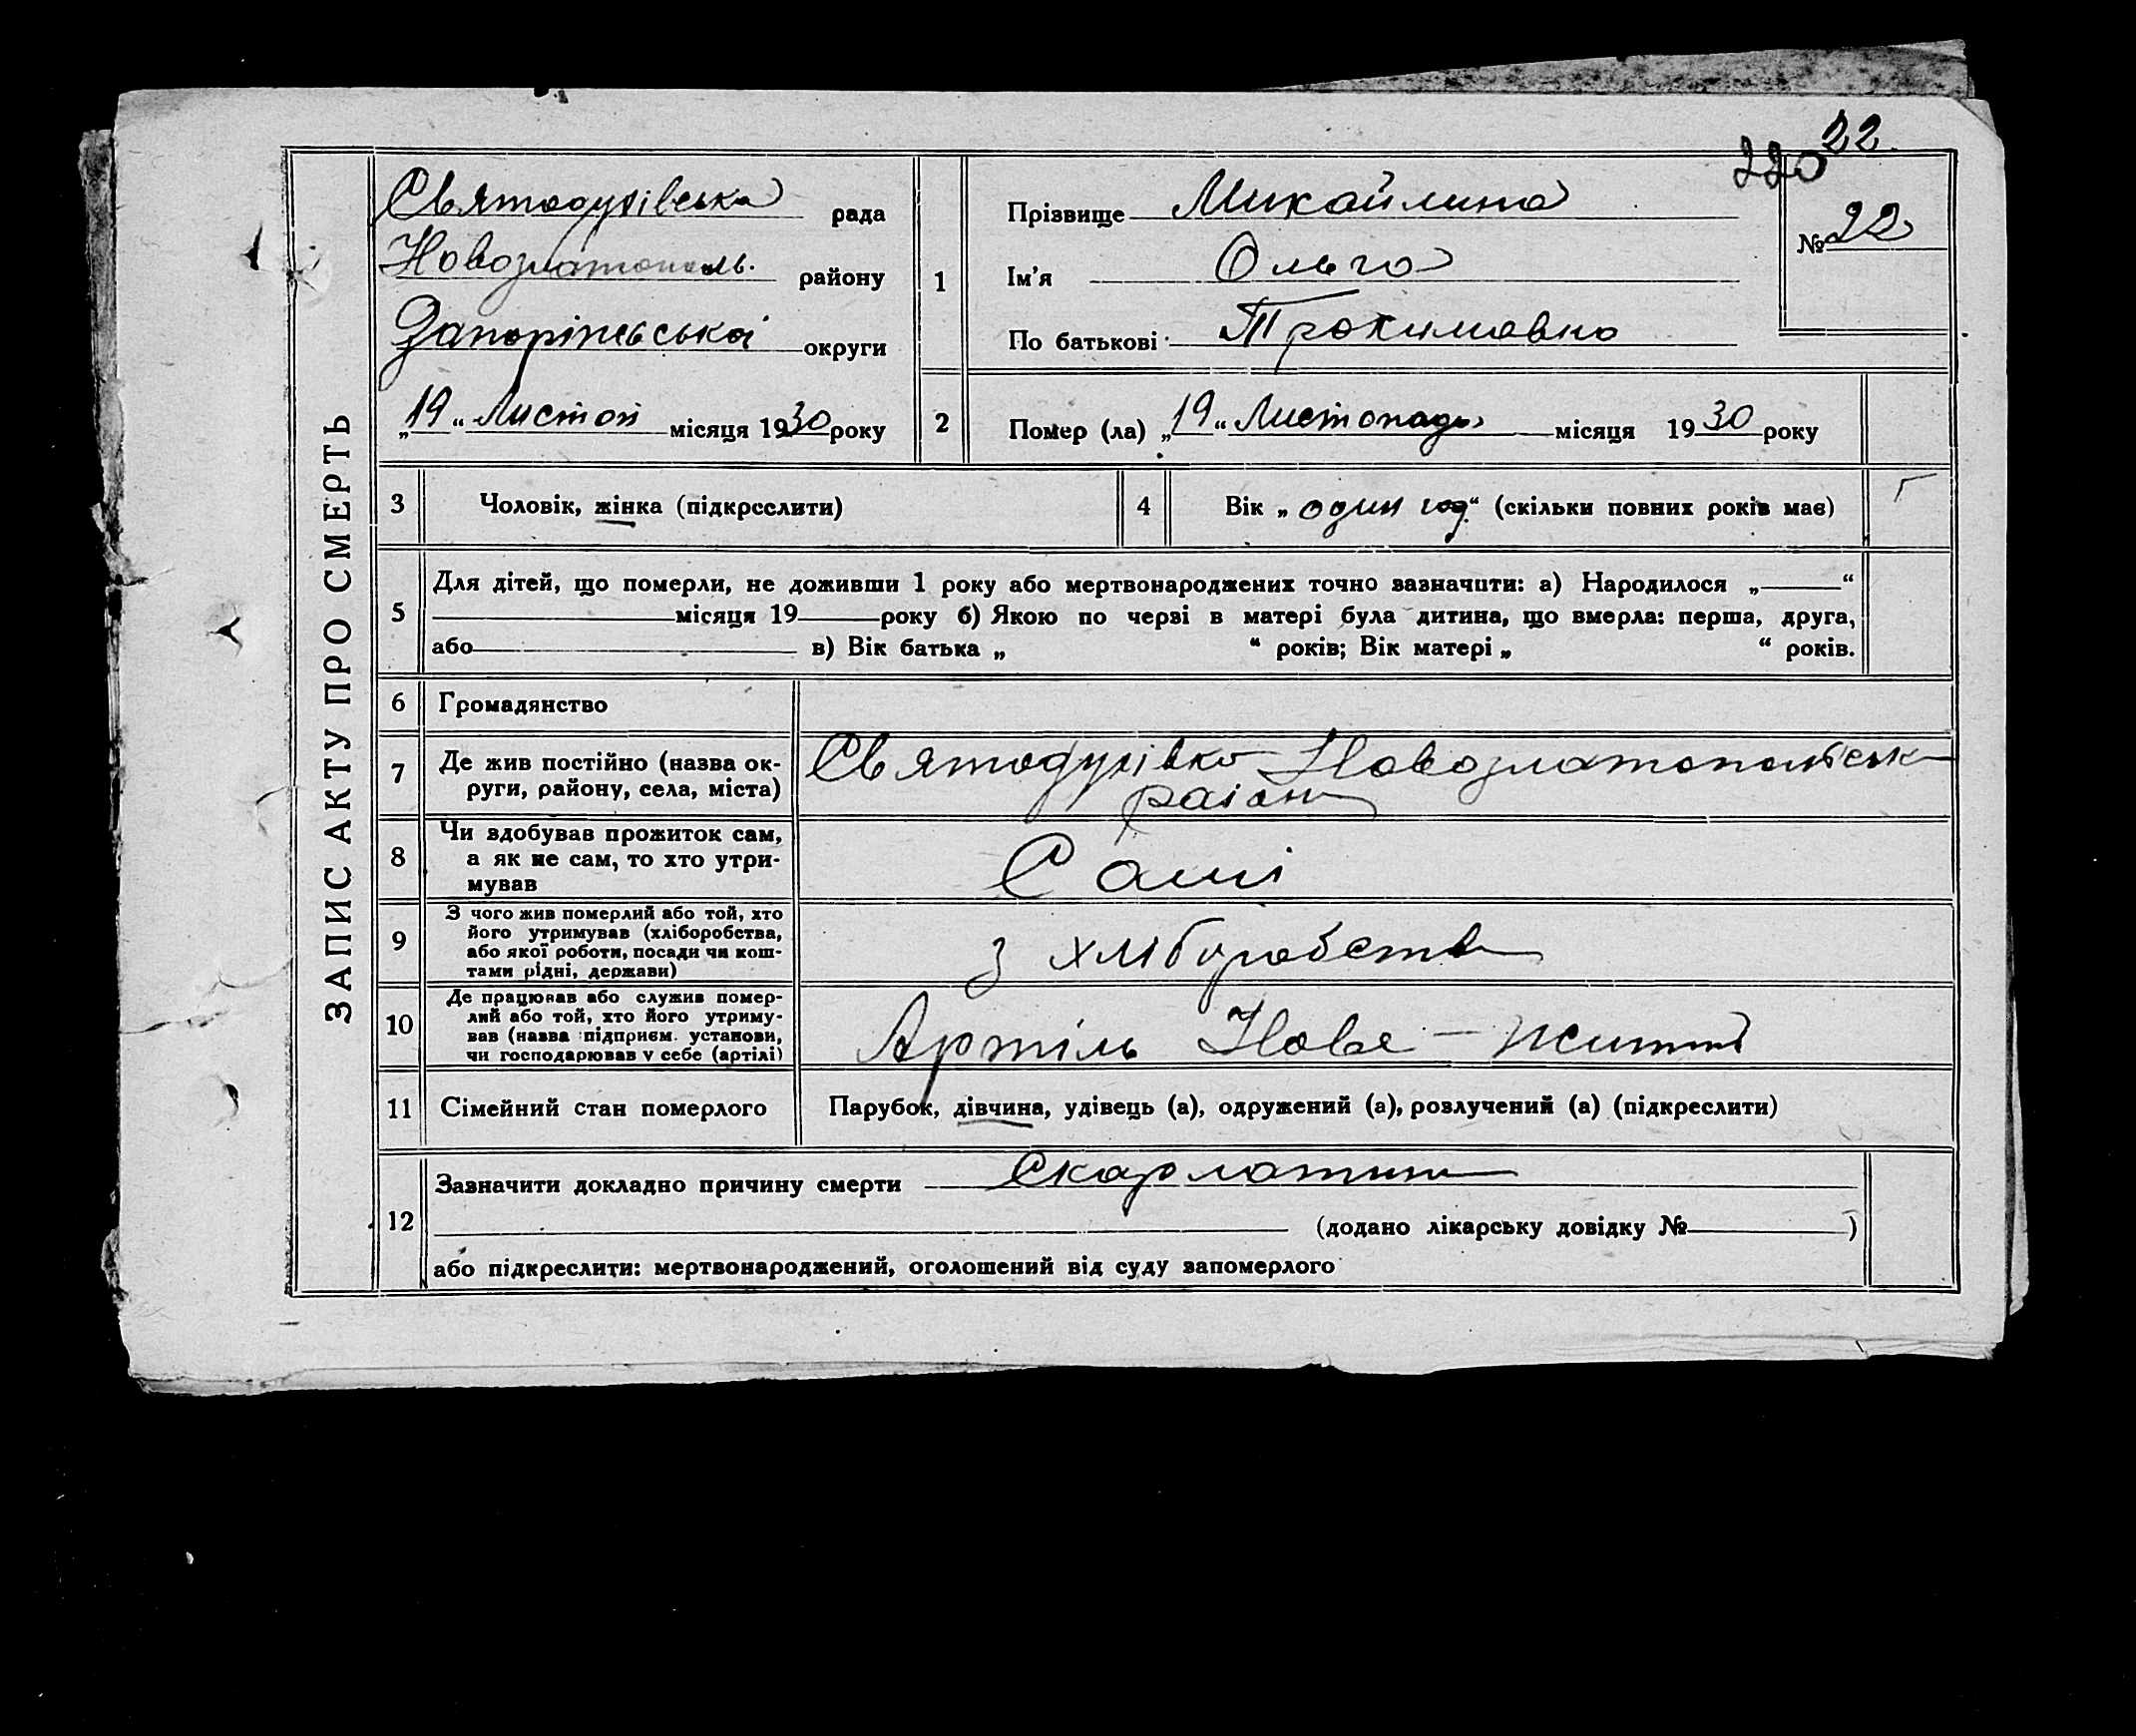 ЗАПИС АКТУ ПРО СМЕРТЬ
22
220
Святодухівська рада
Новозлатополь. району
Запоріжської округи
„19“ Листоп місяця 1930 року
1
Прізвище Микайлина
Ім'я Ольга
По батькові Трохимовна
№ 22
2
Помер (ла) „19“ Листопада місяця 1930 року
3 Чоловік, жінка (підкреслити)
4 Вік „один год“ (скільки повних років має)
5
Для дітей, що померли, не доживши 1 року або мертвонароджених точно зазначити: а) Народилося „ “
місяця 19 року б) Якою по черзі в матері була дитина, що вмерла: перша, друга,
або в) Вік батька „ “ років; Вік матері „ “ років.
6 Громадянство
7 Де жив постійно (назва ок-
руги, району, села, міста)
Святодухівка Новозлатопольськ
район
8 Чи здобував прожиток сам,
а як не сам, то хто утри-
мував
Самі
9 З чого жив померлий або той, хто
його утримував (хліборобства,
або якої роботи, посади чи кош-
тами рідні, держави)
з хліборобства
10 Де працював або служив помер-
лий або той, хто його утриму-
вав (назва підприєм. установи,
чи господарював у себе (артілі)
Артіль Нове - Життя
11 Сімейний стан померлого
Парубок, дівчина, удівець (а), одружений (а), розлучений (а) (підкреслити)
12
Зазначити докладно причину смерти Скарлатина
(додано лікарську довідку № )
або підкреслити: мертвонароджений, оголошений від суду запомерлого